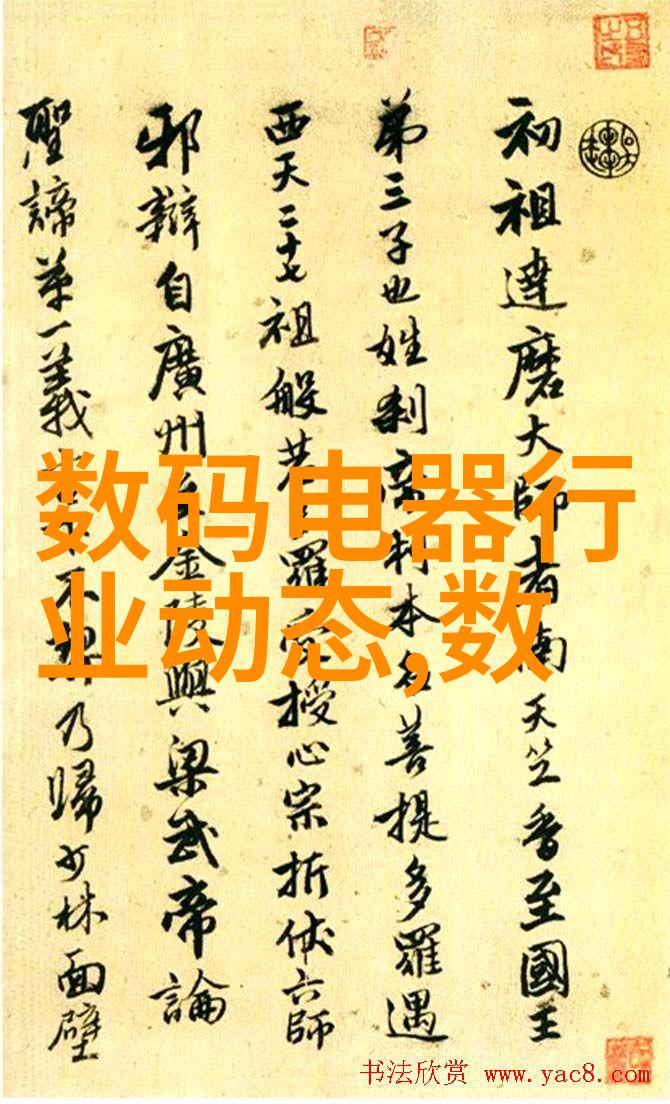 初祖達磨大師者南天竺香至國王
第三子也姓刹帝利本名菩提多羅遇
西天二十七祖般若多羅授心宗折伏六師
邪辯自廣州至金陵與梁武帝論
聖諦第一義不契乃歸少林面壁
数码电器行
业动态,数
书法欣赏 www.yac8.com